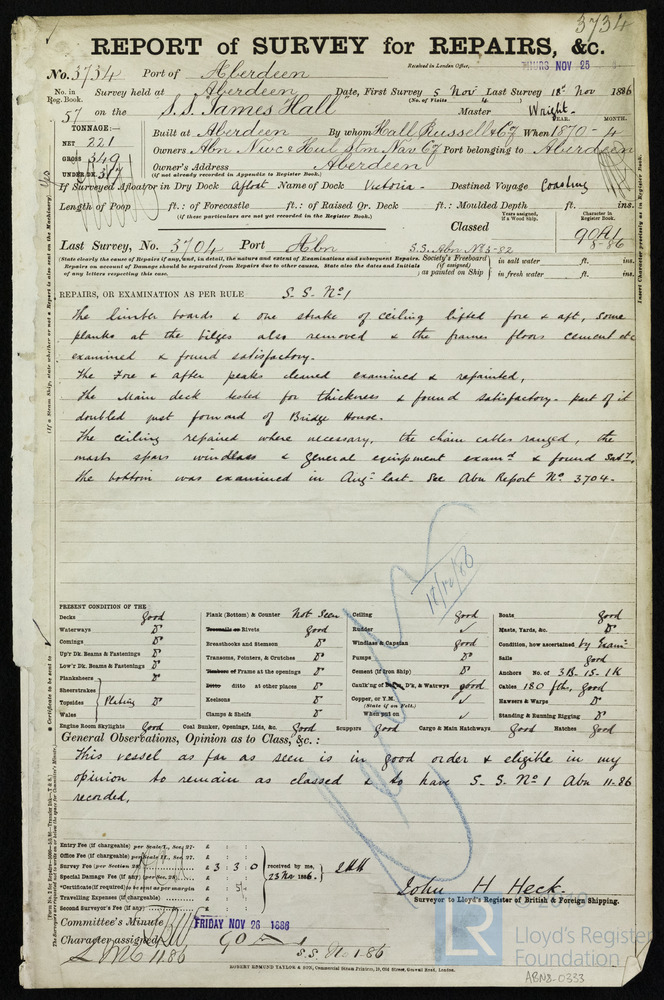 3734
REPORT of SURVEY for REPAIRS, &c.
No. 3734 Port of Aberdeen Received in London Office, THURS NOV 25
No. in Reg. Book. Survey held at Aberdeen Date, First Survey 5 Nov Last Survey 18th Nov 1886
(No. of Visits 4)
57 on the S.S. "James Hall" Master Wright
TONNAGE:— YEAR. MONTH.
NET 221 Built at Aberdeen By whom Hall Russell & Co When 1870 - 4
GROSS 349 Owners Abn Newc & Hull Stm Nav Co Port belonging to Aberdeen
UNDER DK. 317 Owner's Address Aberdeen
(if not already recorded in Appendix to Register Book.)
If Surveyed Afloat or in Dry Dock Afloat Name of Dock Victoria - Destined Voyage Coasting
Length of Poop ft.: of Forecastle ft.: of Raised Qr. Deck ft.: Moulded Depth ft. ins.
(If these particulars are not yet recorded in the Register Book.) Years assigned, if a Wood Ship. Character in Register Book.
Classed 90A1
8-86
Last Survey, No. 3704 Port Abn S.S. Abn No 3-82
(State clearly the cause of Repairs if any, and, in detail, the nature and extent of Examinations and subsequent Repairs. Society's Freeboard (if assigned) in salt water ft. ins.
Repairs on account of Damage should be separated from Repairs due to other causes. State also the dates and Initials of any letters respecting this case. as painted on Ship in fresh water ft. ins.
REPAIRS, OR EXAMINATION AS PER RULE S. S. No 1
The limber boards & one strake of ceiling lifted fore & aft, some
planks at the bilges also removed & the frames floors cement etc
examined & found satisfactory.
The Fore & after peaks cleaned examined & repainted,
The Main deck tested for thickness & found satisfactory - part of it
doubled just forward of Bridge House.
The ceiling repaired where necessary, the chain cables ranged, the
masts spars windlass & general equipment examd & found Saty,
The bottom was examined in Augt last. See Abn Report No 3704.
18/10/86
PRESENT CONDITION OF THE
Decks Good Plank (Bottom) & Counter Not Seen Ceiling Good Boats Good
Waterways Do Treenails or Rivets Good Rudder ✓ Masts, Yards, &c. Do
Comings Do Breasthooks and Stemson Do Windlass & Capstan Good Condition, how ascertained by Exam
Up'r Dk. Beams & Fastenings Do Transoms, Pointers, & Crutches Do Pumps Do Sails Good
Low'r Dk. Beams & Fastenings Do Timbers or Frame at the openings Do Cement (if Iron Ship) Do Anchors No. of 3B. 1S. 1K
Planksheers Do Ditto ditto at other places Do Caulk'ng of Bot'm, D'k, & Watrwys good Cables 180 fths, Good
Sheerstrakes Keelsons Do Copper, or Y.M. (State if on Felt.) ✓ Hawsers & Warps Do
Topsides Plating Clamps & Shelfs Do When put on ✓ Standing & Running Rigging Do
Wales
Engine Room Skylights Good Coal Bunker, Openings, Lids, &c. Good Scuppers Good Cargo & Main Hatchways Good Hatches Good
General Observations, Opinion as to Class, &c.:
This vessel as far as seen is in good order & eligible in my
opinion to remain as classed & to have S. S. No 1 Abn 11-86
recorded.
Entry Fee (if chargeable) per Scale I., Sec. 27. £ : :
Office Fee (if chargeable) per Scale II., Sec. 27. £ : :
Survey Fee (per Section 28) £ 3 : 3 : 0 received by me,
Special Damage Fee (if any) (per Sec. 28) £ : : 23 Nov 1886.
*Certificate (if required) to be sent as per margin £ : 5 :
Travelling Expenses (if chargeable) £ : :
Second Surveyor's Fee (if any) £ : :
John H Heck.
Surveyor to Lloyd's Register of British & Foreign Shipping.
Committee's Minute FRIDAY NOV 26 1886
Character assigned 90 A 1
LMC 11.86 S.S. No 1-86
ROBERT EDMUND TAYLOR & SON, Commercial Steam Printers, 19, Old Street, Goswell Road, London.
LR
Lloyd's Register
Foundation
ABN8-0333